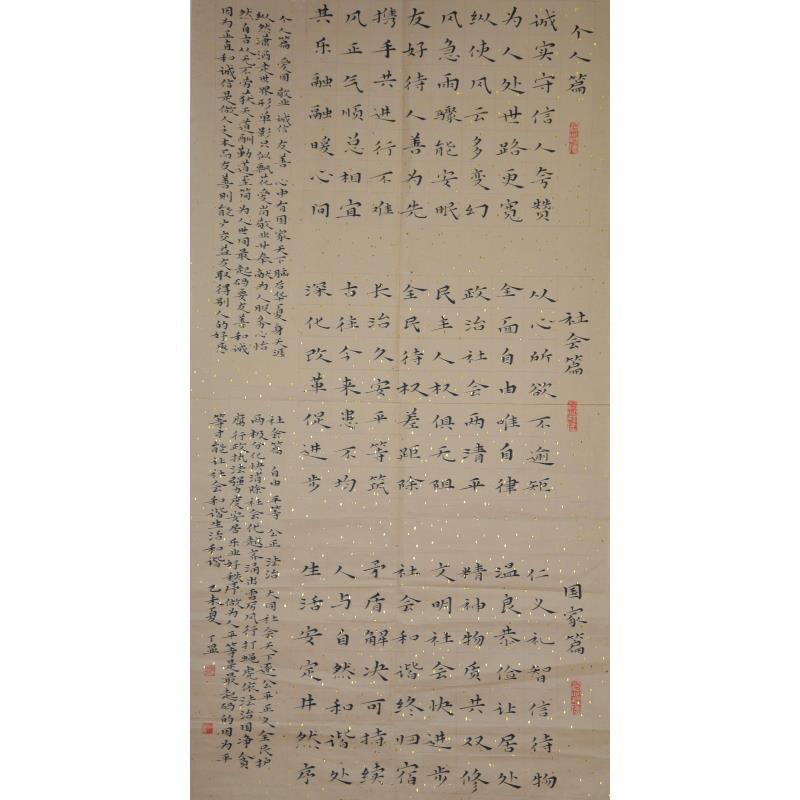 个人篇
诚实守信人夸赞
为人处世路更宽
纵使风云多变幻
风急雨骤能安眠
友好待人善为先
携手共进行不难
风正气顺总相宜
其乐融融暖心间
社会篇
从心所欲不逾矩
全面自由唯自律
政治社会两清平
民主人权俱无阻
全民待权差距除
长治久安平等筑
古往今来患不均
深化改革促进步
国家篇
仁义礼智信待物
温良恭俭让居处
精神物质共双修
文明社会快进步
社会和谐终归宿
矛盾解决可持续
人与自然和谐处
生活安定井然序
个人篇 爱国 敬业 诚信 友善 心中有国家天下脑后华夏身天涯
纵然潇洒走世界形单影只似飘花爱岗敬业甘奉献为人服务心怡
然自古以天道酬勤善至简为人世间最起码要友善和诚
因为正直和诚信是做人之本而友善则能广交益友取得别人的好感
社会篇 自由 平等 公正 法治 大同社会天下逐公平正义全民护
两极分化快消除社会化趋齐涌出雷厉风行打蝇虎依法治国净贪
腐行政执法强力度安居乐业好秩序做为人平等是最起码的因为平
等才能让社会和谐生活和谐 己未夏